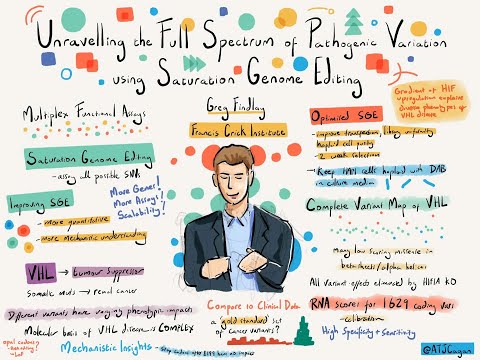 Unravelling the Full Spectrum of Pathogenic Variation
using Saturation Genome Editing
Greg Findlay
Francis Crick Institute
Multiplex Functional Assays
Saturation Genome Editing
- assay all possible SNVs
Improving SGE
- more quantitative
- more mechanistic understanding
More Genes!
More Assays!
Scalability!
VHL → tumour suppressor
Somatic muts → renal cancer
Different variants have varying phenotypic impacts
Molecular basis of VHL disease is COMPLEX
Mechanistic Insights
- stop codons after have no impact
Compare to Clinical Data
'gold standard' set
of cancer variants?
Gradient of HIF
upregulation explains
diverse phenotypes of
VHL disease
Optimised SGE
- improve transfection, library uniformity
haploid cell purity
- 2 week selections
- Keep HAP1 cells haploid with DAB
in culture media
Complete Variant Map of VHL
Many low scoring missense in
beta sheets/alpha helices
All variant effects eliminated by HIF1A KO
RNA scores for 1629 coding vars
- calibration
High Specificity + Sensitivity
@ATJCagan